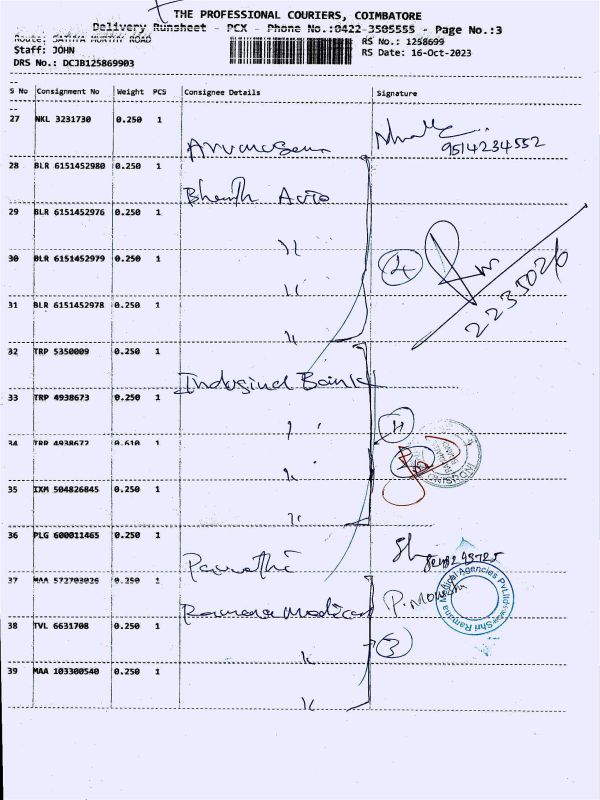 THE PROFESSIONAL COURIERS, COIMBATORE
Delivery Runsheet - PCX - Phone No.:0422-3505555 - Page No.:3
Route: SATHYA MURTHY ROAD
RS No.: 1258699
Staff: JOHN
RS Date: 16-Oct-2023
DRS No.: DCJB125869903
S No Consignment No Weight PCS Consignee Details Signature
27 NKL 3231730 0.250 1
9514234552
28 BLR 6151452980 0.250 1
Bharath Auto
29 BLR 6151452976 0.250 1
"
30 BLR 6151452979 0.250 1
4
"
2235026
31 BLR 6151452978 0.250 1
"
32 TRP 5350009 0.250 1
Indusind Bank
33 TRP 4938673 0.250 1
"
34 TRP 4938672 0.610 1
"
35 IXM 504826845 0.250 1
"
36 PLG 600011465 0.250 1
Parvathi
37 MAA 572703026 0.250 1
Ramana Medical
P. Monisha
Shri Ramana Medical Agencies Pvt.Ltd
38 TVL 6631708 0.250 1
3
"
39 MAA 103300540 0.250 1
"